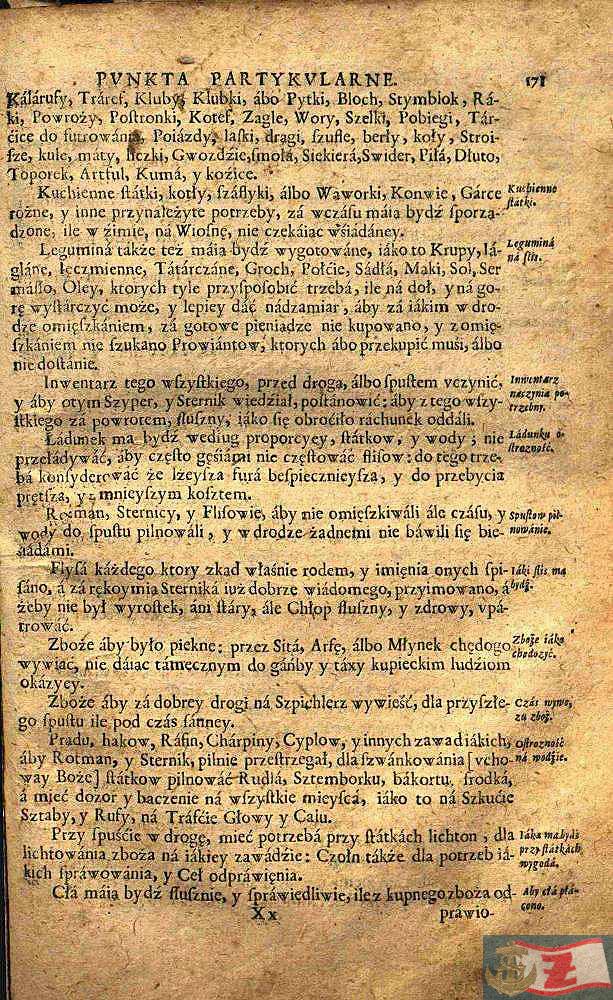 PVNKTA PARTYKVLARNE. 171
Kálárusy, Trárcf, Kluby, Klubki, ábo Pytki, Bloch, Stymblok, Rá-
ki, Powroży, Postronki, Kotef, Zagle, Wory, Szelki, Pobiegi, Tár-
cice do futrowánia, Poiázdy, laski, drągi, szufle, berły, koły, Stroi-
sze, kule, máty, liczki, Gwozdzie, smołá, Siekierá, Swider, Piłá, Dłuto,
Toporek, Artful, Kumá, y koźice.
Kuchienne státki, kotły, száflyki, álbo Wąworki, Konwie, Gárce
rożne, y inne przynależyte potrzeby, zá wczásu máią bydź sporzą-
dzone, ile w źimie, ná Wiosnę, nie czekáiąc wśiádáney.
Kuchienne
státki.
Leguminá tákże też máią bydź wygotowáne, iáko to Krupy, Iá-
gláne, Ięczmienne, Tátárczáne, Groch, Połćie, Sádłá, Mąki, Sol, Ser
másło, Oley, ktorych tyle przysposobić trzebá, ile ná doł, y ná go-
rę wystárczyć może, y lepiey dáć nádzamiar, áby zá iákim w dro-
dze omięszkániem, zá gotowe pieniądze nie kupowano, y z omię-
szkániem nie szukano Prowiántow, ktorych ábo przekupić muśi, álbo
nie dostánie.
Leguminá
ná flis.
Inwentarz tego wszystkiego, przed drogą, álbo spustem vczynić,
y áby o tym Szyper, y Sternik wiedźiał, postánowić: áby z tego wszy-
stkiego zá powrotem, słuszny, iáko się obroćiło rachunek oddáli.
Inwentarz
naczynia po-
trzebny.
Ládunek ma bydź według proporcyey, státkow, y wody; nie
przełádywáć, áby często gęśiámi nie częstowáć flisow: do tego trze-
bá konsyderowáć że lżeysza furá bespiecznieysza, y do przebycia
prętsza, y z mnieyszym kosztem.
Ládunku o-
strozność.
Rotman, Sternicy, y Flisowie, áby nie omięszkiwáli ále czásu, y
wody do spustu pilnowáli, y w drodze żadnemi nie báwili się bie-
siádámi.
Spustow pil-
nowánie.
Flysá káżdego ktory zkąd właśnie rodem, y imięnia onych spi-
sáno, á zá rękoymią Sterniká iuż dobrze wiádomego, przyimowano, á
żeby nie był wyrostek, áni stáry, ále Chłop słuszny, y zdrowy, vpá-
trowáć.
Iáki flis ma
bydź.
Zboże áby było piekne: przez Sitá, Arfę, álbo Młynek chędogo
wywiać, nie dáiąc támecznym do gáńby y táxy kupieckim ludźiom
okazyey.
Zboże iáko
chędożyć.
Zboże áby zá dobrey drogi ná Szpichlerz wywieść, dla przyszłe-
go spustu ile pod czás sánney.
Czás wywo-
zu zboż.
Prądu, hakow, Ráfin, Chárpiny, Cyplow, y innych zawad iákich,
áby Rotman, y Sternik, pilnie przestrzegał, dla szwánkowánia [vcho-
way Boże] státkow pilnowáć Rudlá, Sztemborku, bákortu, środká,
á mieć dozor y baczenie ná wszystkie mieyscá, iáko to ná Szkućie
Sztaby, y Rufy, ná Tráfćie Głowy y Cału.
Ostrozność
ná wodźie.
Przy spuśćie w drogę, mieć potrzebá przy státkách lichton, dla
lichtowánia zboża ná iákiey zawádźie: Czołn tákże dla potrzeb iá-
kich spráwowánia, y Ceł odpráwięnia.
Iáka ma bydź
przy státkách
wygodá.
Cłá máią bydź słusznie, y spráwiedliwie, ile z kupnego zboża od-
Aby cłá płá-
cono.
Xx prawio-